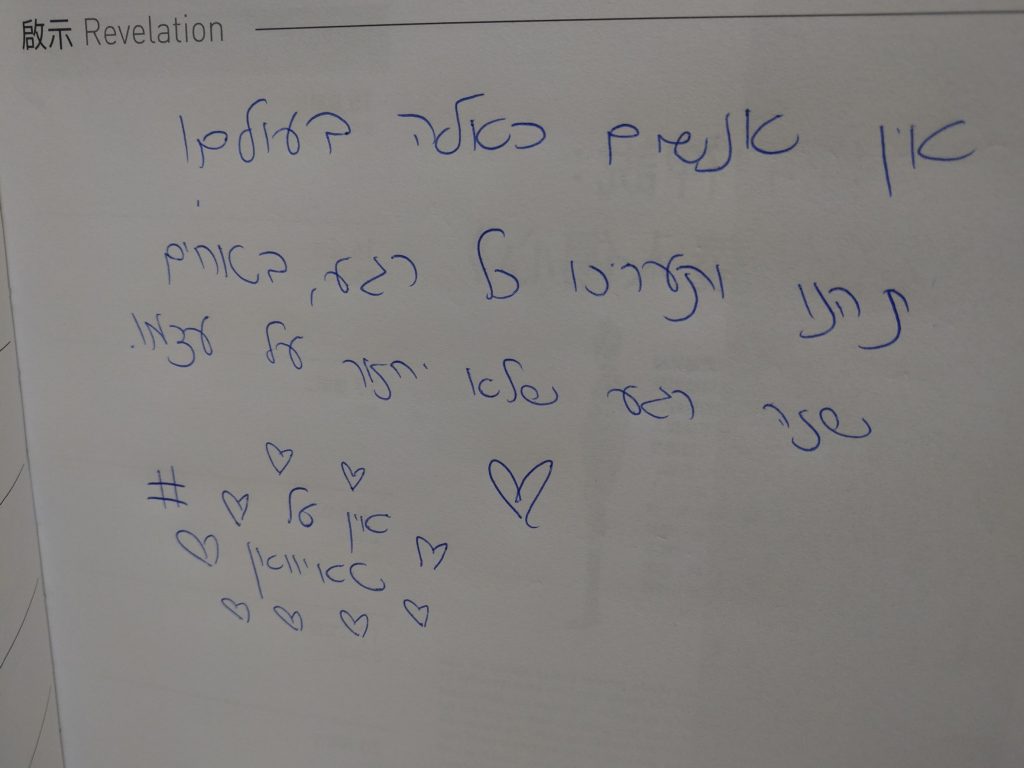 啟示 Revelation
אין אנשים כאלה בעולם!
תהנו ותעריכו כל רגע, באוחים
שזה רגע שלא יחזור על עצמו.
# אין על
טאיוואן